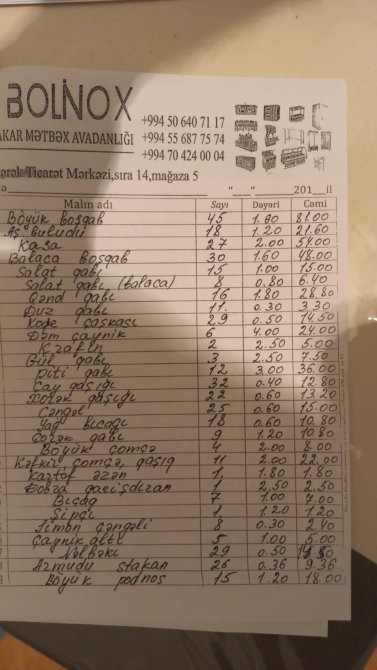 BOLİNOX
+994 50 640 71 17
AKAR MƏTBƏX AVADANLIĞI +994 55 687 75 74
+994 70 424 00 04
ərək Ticarət Mərkəzi,sıra 14,mağaza 5
ə “ ” 201 il
Malın adı Sayı Dəyəri Cəmi
Böyük boşgab 45 1.80 81.00
Aş buludu 18 1.20 21.60
Kasa 27 2.00 54.00
Balaca boşgab 30 1.60 48.00
Salat gabı 15 1.00 15.00
Salat gabı (balaca) 8 0.80 6.40
Qənd gabı 16 1.80 28.80
Duz gabı 11 0.30 3.30
Kofe çaşkası 29 0.50 14.50
Dəm çaynik 6 4.00 24.00
Krafin 2 2.50 5.00
Gül gabı 3 2.50 7.50
Piti gabı 12 3.00 36.00
Çay gaşığı 32 0.40 12.80
Xörək gaşığı 22 0.60 13.20
Çəngəl 25 0.60 15.00
Yağ bıcağı 18 0.60 10.80
Çörək gabı 9 1.20 10.80
Böyük çomçə 4 2.00 8.00
Kəfkir, çomçə, gaşıg 11 2.00 22.00
Kartof əzən 1 1.80 1.80
Dovğa garışdıran 1 2.50 2.50
Bıçag 7 1.00 7.00
Şipçi 1 1.20 1.20
Limon çəngəli 8 0.30 2.40
Çaynik altı 5 1.00 5.00
Nəlbəki 29 0.50 14.50
Armudu stakan 26 0.36 9.36
Böyük podnos 15 1.20 18.00